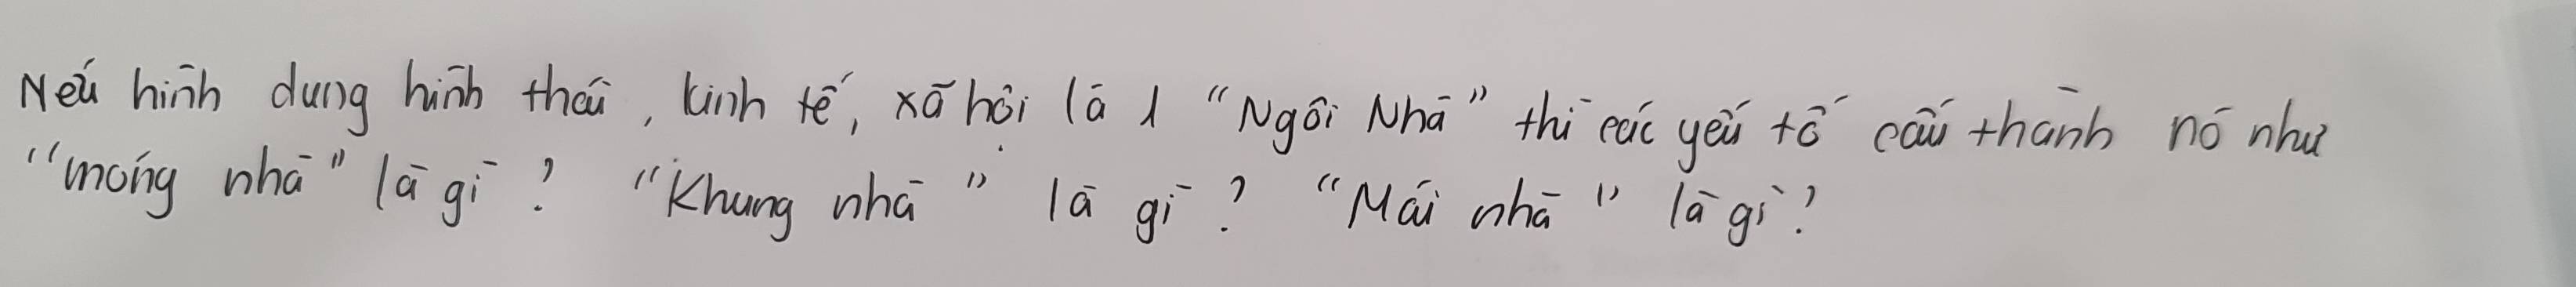 Nếu hình dung hình thái, kinh tế, xã hội là 1 "Ngôi Nhà" thì các yếu tố cấu thành nó như
"móng nhà" là gì? "Khung nhà" là gì? "Mái nhà" là gì?